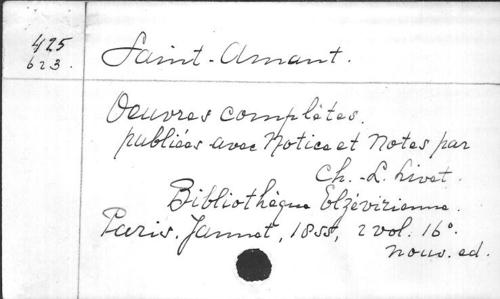 425
623.
Saint-Amant.
Oeuvres complètes.
publiées avec Notice et Notes par
Ch.-L. Livet.
Bibliothèque Elzévirienne.
Paris. Jannet, 1855, 2 vol. 16°.
nouv. ed.